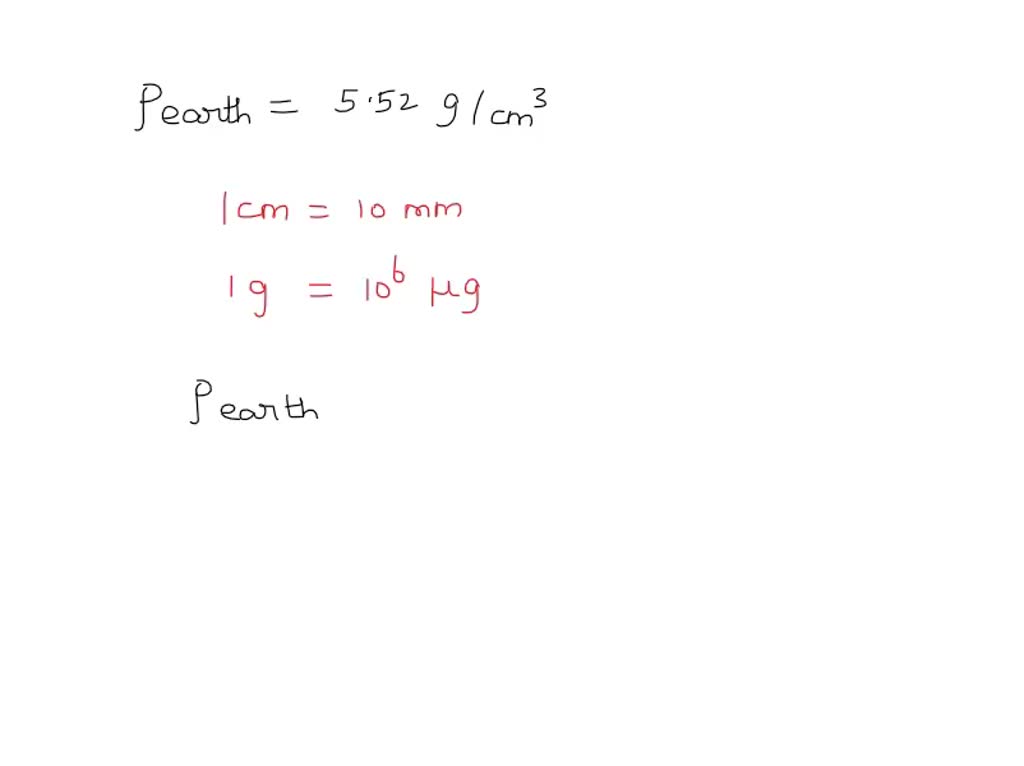 ρearth = 5.52 g/cm³
1cm = 10 mm
1g = 10⁶ μg
ρearth